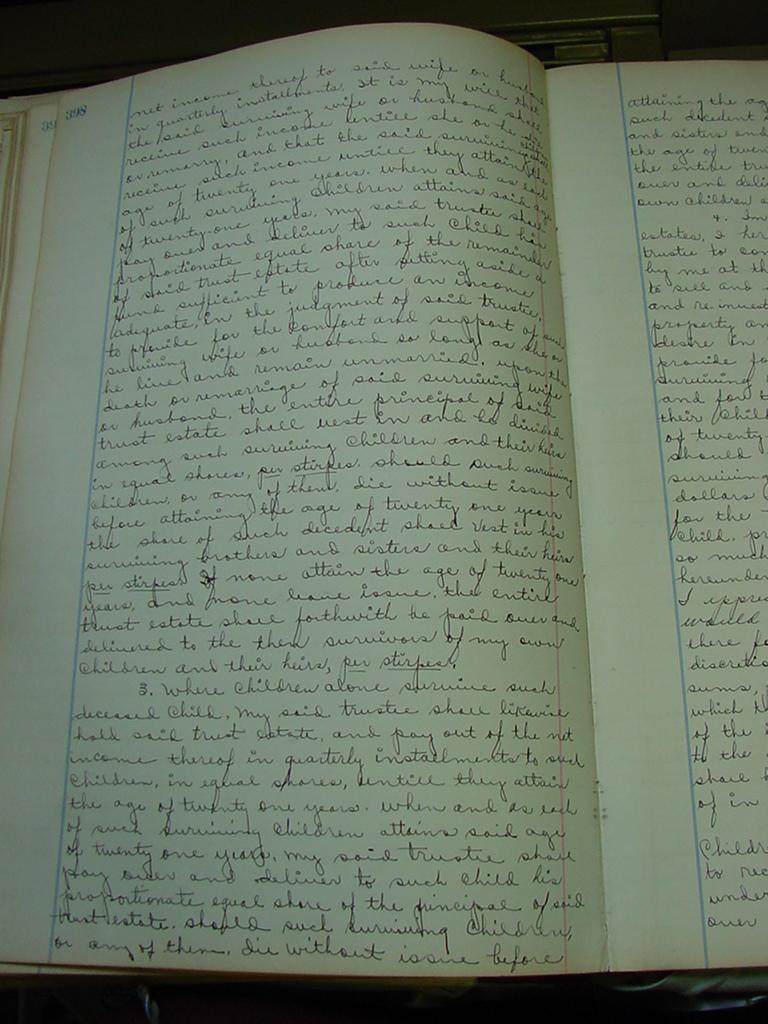 398
net income thereof to said wife or husband
in quarterly installments. It is my will that
the said surviving wife or husband shall
receive such income untill she or he die
or remarry, and that the said surviving
receive such income untill they attain the
age of twenty one years. when and as each
of such surviving Children attains said age
of twenty-one years, my said trustee shall
pay over and deliver to such Child his
proportionate equal share of the remainder
of said trust estate after setting aside a
fund sufficient to produce an income
adequate, in the judgment of said trustee,
to provide for the comfort and support of such
surviving wife or husband so long as she or
he live and remain unmarried. upon the
death or remarriage of said surviving wife
or husband, the entire principal of said
trust estate shall vest in and be divided
among such surviving Children and their heirs
in equal shares, per stirpes. should such surviving
Children, or any of them, die without issue
before attaining the age of twenty one years
the share of such decedent shall vest in his
surviving brothers and sisters and their heirs
per stirpes. If none attain the age of twenty one
years, and none leave issue, the entire
trust estate shall forthwith be paid over and
delivered to the then survivors of my own
Children and their heirs, per stirpes.
3. Where Children alone survive such
deceased Child, my said trustee shall likewise
hold said trust estate, and pay out of the net
income thereof in quarterly installments to such
Children, in equal shares, untill they attain
the age of twenty one years. when and as each
of such surviving Children attains said age
of twenty one years, my said trustee shall
pay over and deliver to such Child his
proportionate equal share of the principal of said
trust estate. should such surviving Children,
or any of them, die without issue before
attaining the ag
such decedent
and sisters and
the age of twen
the entire tru
over and deli
own Children
4. Im
estates, I her
trustee to con
by me at th
to sell and
and re-invest
property an
desire in
provide fo
surviving
and for t
their Child
of twenty
should
surviving
dollars
for the
Child, pr
so much
hereunder
I expres
would
there fo
discretio
sums,
which t
of the i
to the
shall b
of in
Childr
to rec
under
over